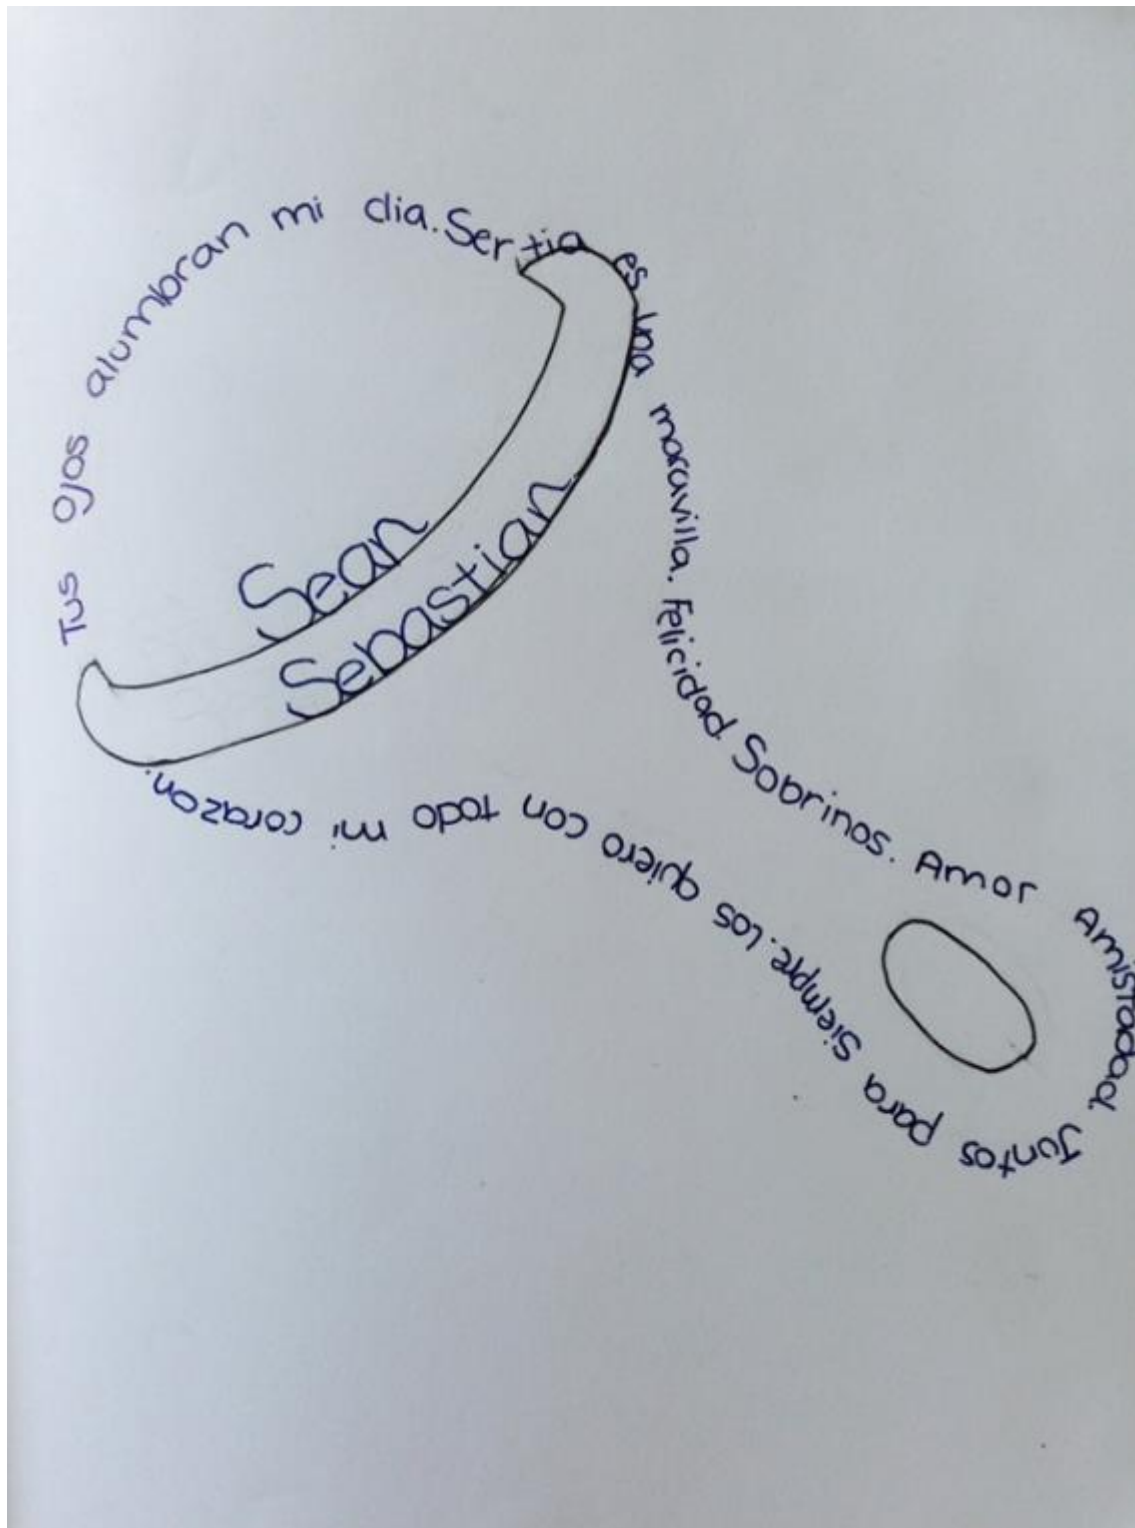 Tus ojos alumbran mi dia. Ser tia es una maravilla. Felicidad Sobrinos. Amor Amistad. Juntos para siempre. Los quiero con todo mi corazon.
Sean
Sebastian